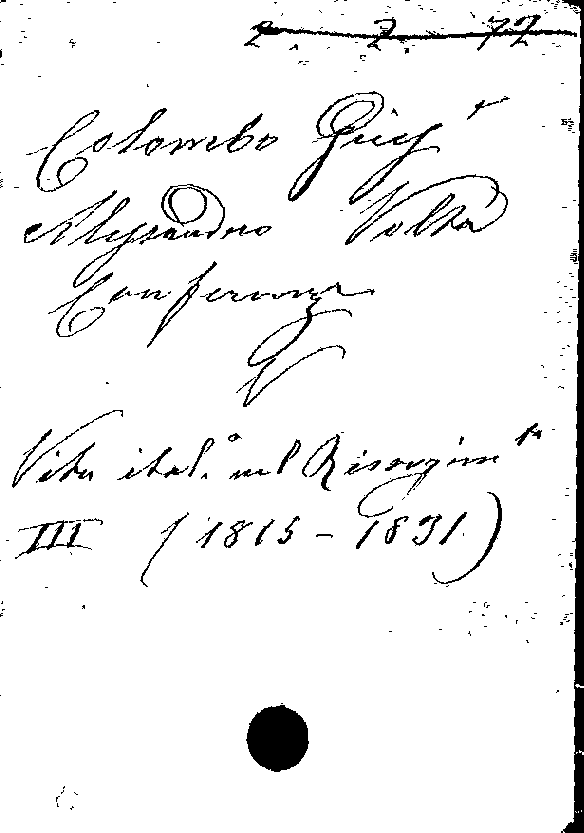 2. 2. 72
Colombo
Alessandro Volta
Conferenza
V
Vita ital.ª nel Risorgim.to
III (1815-1831)